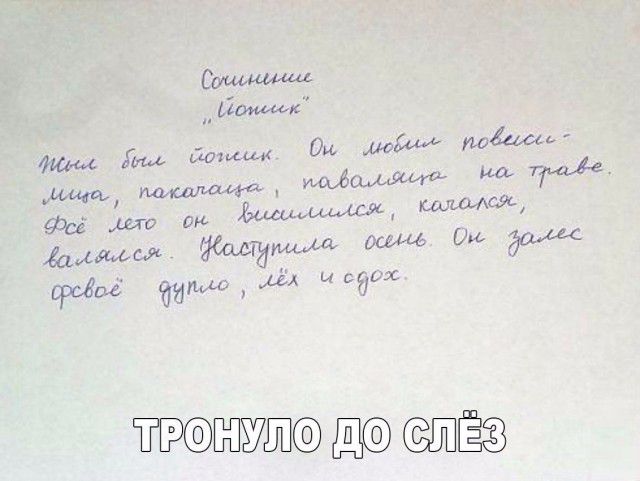 Сочинение
„Йожик"
Жыл был йожик. Он любил повесили-
лица, пакачаца, паваляца на траве.
Фсё лето он висилился, качался,
валялся. Наступила осень. Он залес
фсвоё дупло, лёх и сдох.
ТРОНУЛО ДО СЛЁЗ